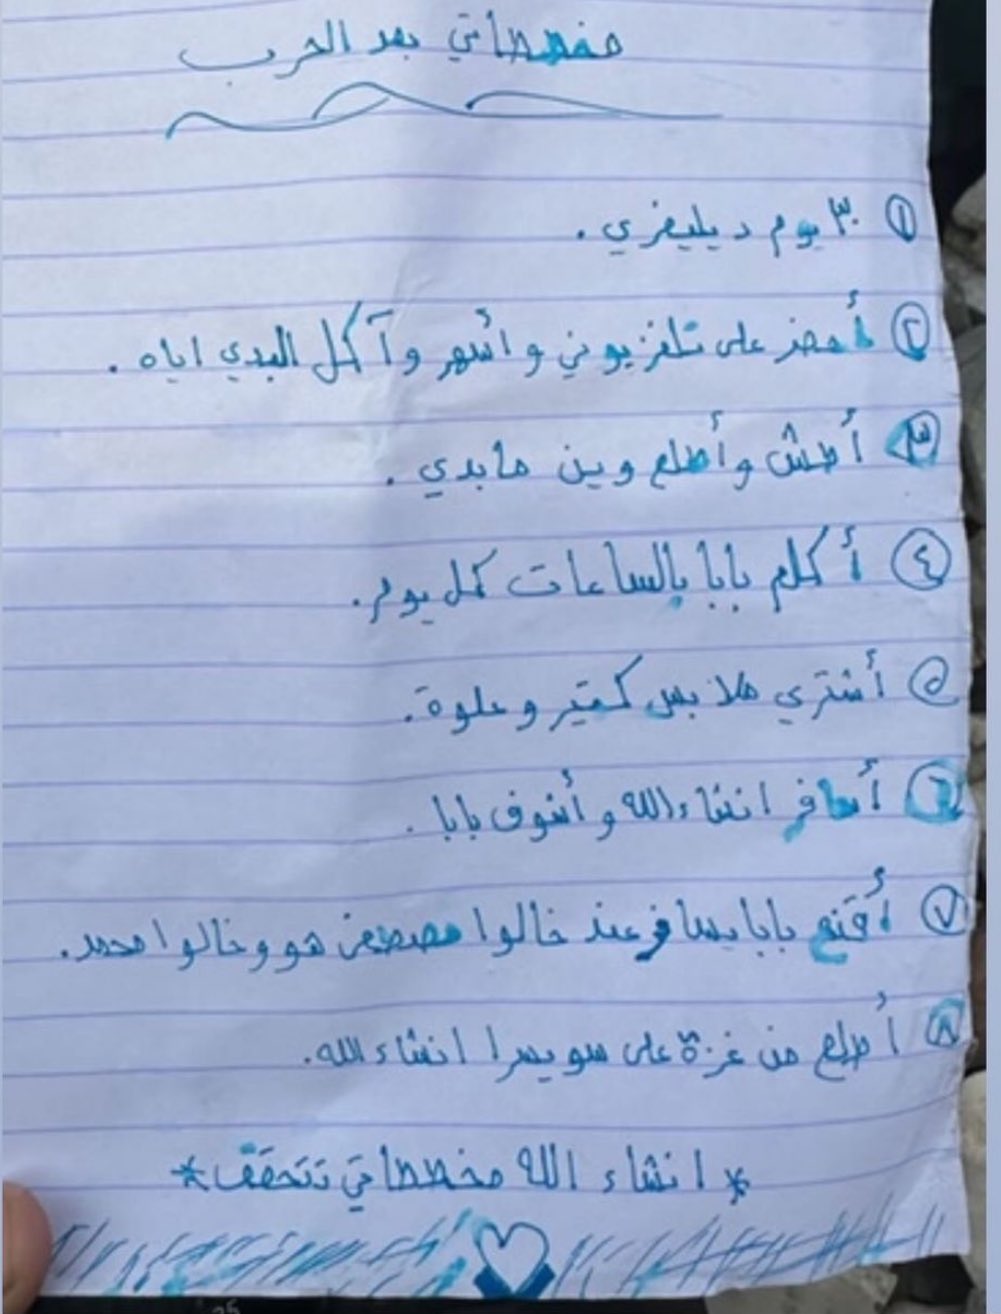 مخططاتي بعد الحرب
① ٣٠ يوم ديليفري .
② أحضر على تلفزيوني وأسهر وآكل البدي اياه .
③ أطش وأطلع وين مابدي .
④ أكلم بابا بالساعات كل يوم .
⑤ أشتري ملابس كتير وحلوة .
⑥ أسافر انشاءالله وأشوف بابا .
⑦ أقنع بابا يسافر عند خالوا مصطفى هو وخالوا محمد .
⑧ أطلع من غزة على سويسرا انشاءالله .
* انشاء الله مخططاتي تتحقق *